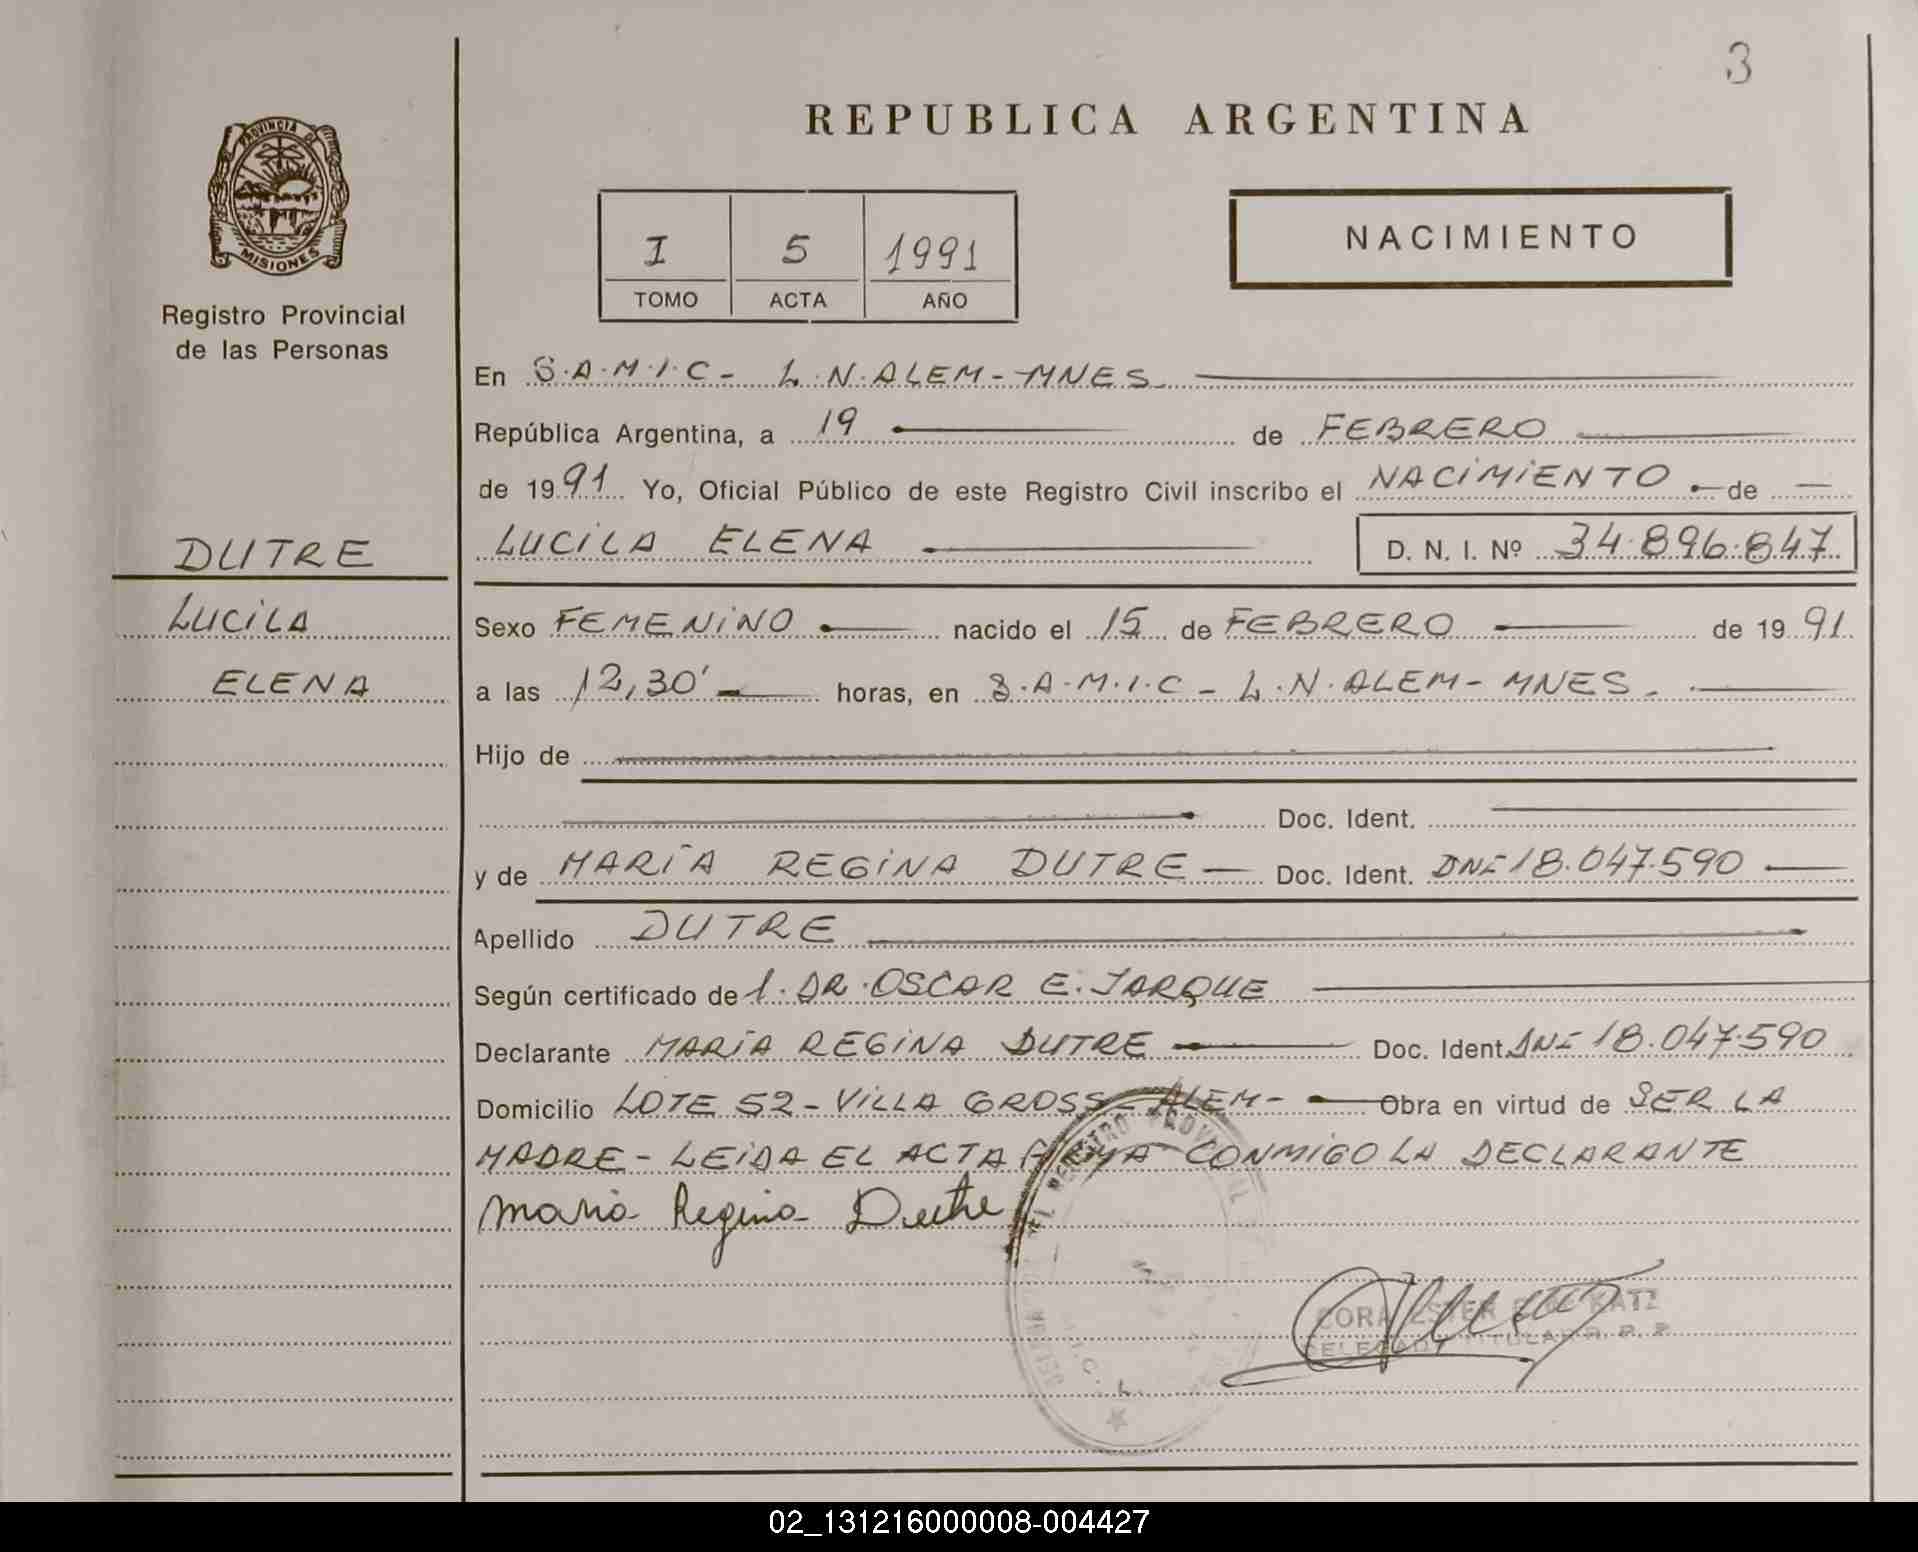 3
REPUBLICA ARGENTINA
PROVINCIA DE
MISIONES
Registro Provincial
de las Personas
I 5 1991
TOMO ACTA AÑO
NACIMIENTO
En S.A.M.I.C - L.N.ALEM - MNES
República Argentina, a 19 de FEBRERO
de 1991 Yo, Oficial Público de este Registro Civil inscribo el NACIMIENTO de
LUCILA ELENA D. N. I. Nº 34.896.847
DUTRE
LUCILA
ELENA
Sexo FEMENINO nacido el 15 de FEBRERO de 1991
a las 12,30' horas, en S.A.M.I.C - L.N.ALEM - MNES.
Hijo de
Doc. Ident.
y de MARÍA REGINA DUTRE Doc. Ident. DNI 18.047.590
Apellido DUTRE
Según certificado de l. DR. OSCAR E. JARQUE
Declarante MARÍA REGINA DUTRE Doc. Ident. DNI 18.047.590
Domicilio LOTE 52 - VILLA GROSS - ALEM - Obra en virtud de SER LA
MADRE - LEIDA EL ACTA FIRMA CONMIGO LA DECLARANTE
Maria Regina Dutre
ESTER KATZ
TITULAR R. P. P.
02_131216000008-004427